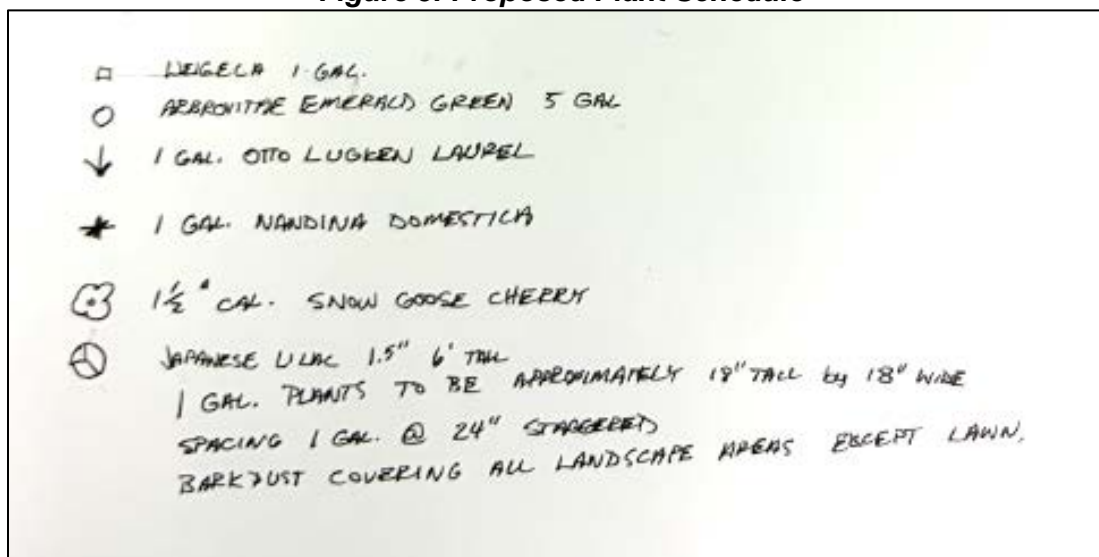 Figure Proposed Plant Schedule
WEIGELA 1 GAL.
ARBROVITAE EMERALD GREEN 5 GAL
1 GAL. OTTO LUGKEN LAUREL
1 GAL. NANDINA DOMESTICA
1 1/2" CAL. SNOW GOOSE CHERRY
JAPANESE LILAC 1.5" 6' TALL
1 GAL. PLANTS TO BE APPROXIMATELY 18" TALL by 18" WIDE
SPACING 1 GAL. @ 24" STAGGERED
BARKDUST COVERING ALL LANDSCAPE AREAS EXCEPT LAWN.